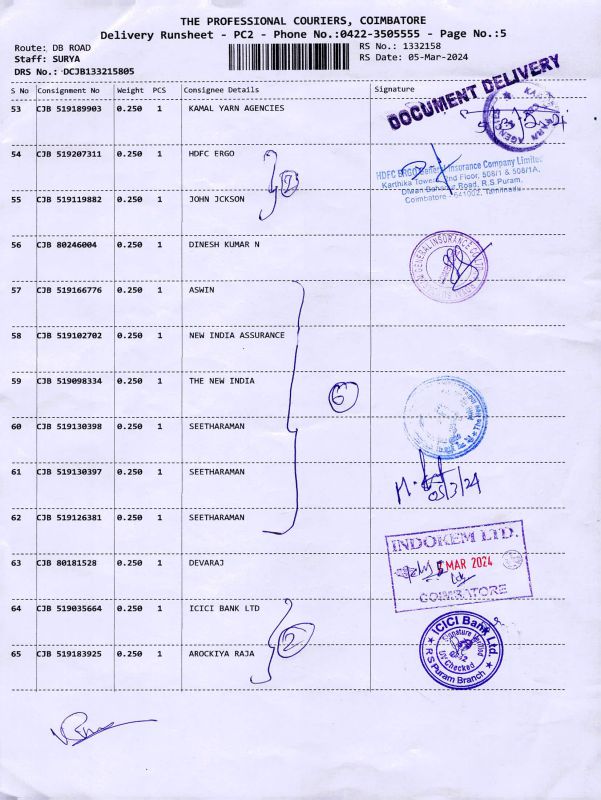 THE PROFESSIONAL COURIERS, COIMBATORE
Delivery Runsheet - PC2 - Phone No.:0422-3505555 - Page No.:5
Route: DB ROAD
Staff: SURYA
DRS No.: DCJB133215805
RS No.: 1332158
RS Date: 05-Mar-2024
S No Consignment No Weight PCS Consignee Details Signature
DOCUMENT DELIVERY
53 CJB 519189903 0.250 1 KAMAL YARN AGENCIES
54 CJB 519207311 0.250 1 HDFC ERGO
HDFC ERGO General Insurance Company Limited
Karthika Towers, 2nd Floor, 508/1 & 508/1A,
Diwan Bahadur Road, R.S.Puram,
Coimbatore - 641002, Tamilnadu
2
55 CJB 519119882 0.250 1 JOHN JCKSON
56 CJB 80246004 0.250 1 DINESH KUMAR N
GENERAL INSURANCE CO. LTD
57 CJB 519166776 0.250 1 ASWIN
58 CJB 519102702 0.250 1 NEW INDIA ASSURANCE
59 CJB 519098334 0.250 1 THE NEW INDIA
6
60 CJB 519130398 0.250 1 SEETHARAMAN
61 CJB 519130397 0.250 1 SEETHARAMAN
05/3/24
62 CJB 519126381 0.250 1 SEETHARAMAN
INDOKEM LTD.
5 MAR 2024
COIMBATORE
63 CJB 80181528 0.250 1 DEVARAJ
64 CJB 519035664 0.250 1 ICICI BANK LTD
2
ICICI Bank Ltd.
Signature Verified
UV Checked
R S Puram Branch
65 CJB 519183925 0.250 1 AROCKIYA RAJA